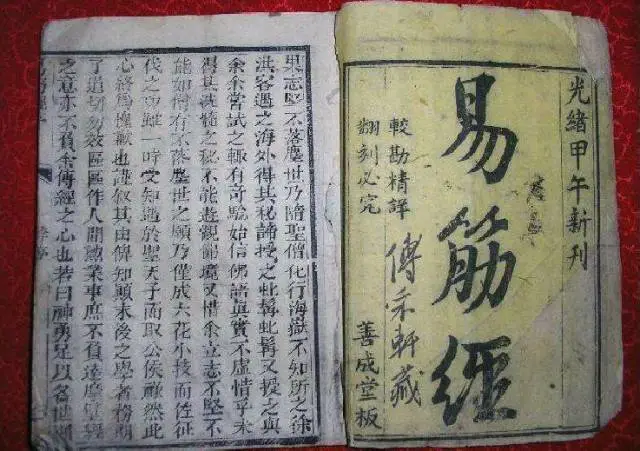 光緒甲午新刊
易筋經
較勘精詳
翻刻必究
傳采軒藏
善成堂板
果志堅不落塵世乃隨聖僧化行海嶽不知所之徐
洪客遇之海外得其秘諦授之虬髯虬髯又授之與
余余嘗試之輒有奇驗始信佛語真實不虛惜乎未
得其洗髓之秘不能遊觀佛境又惜余立志不堅不
能如僧有不落塵世之願乃僅成六花小技而佐征
伐之功雖一時受知遇於聖天子而取公侯雖然此
心終為愧歉也謹敘其由俾知顛末後之學者務期
了道切勿效區區作人間勳業事庶不負達摩留經
之意亦不負余傳經之心也若曰神勇足以名世